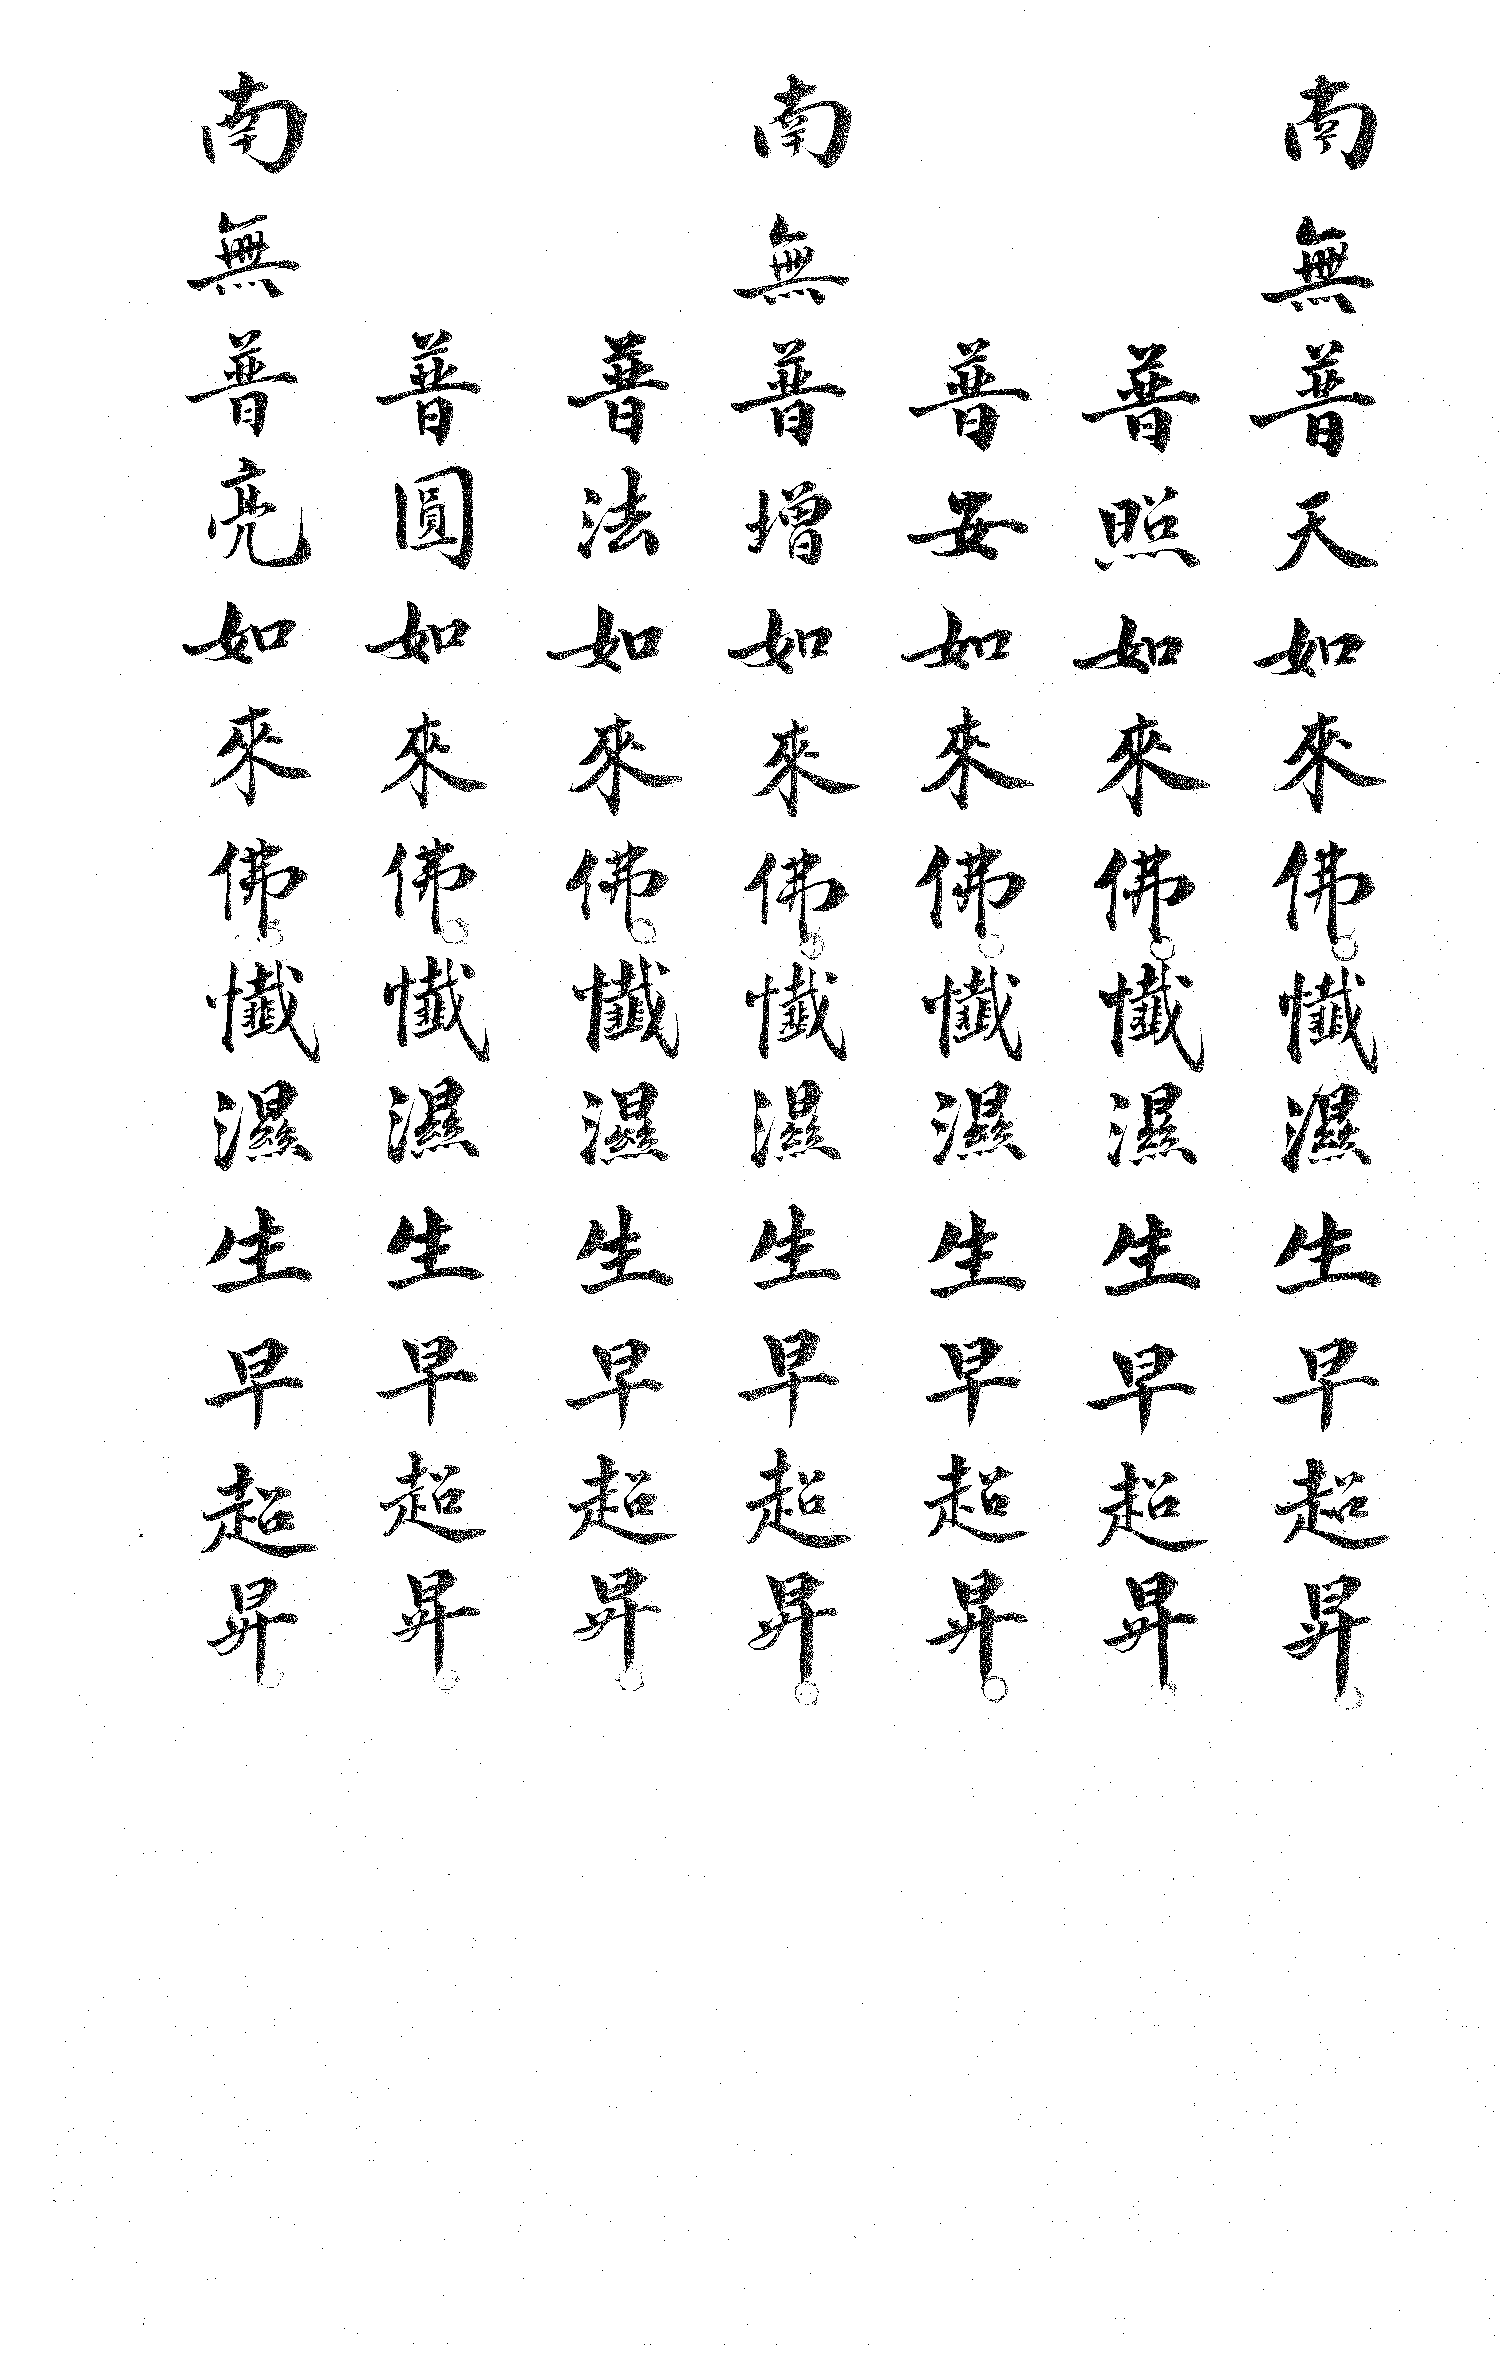 南無普天如來佛○懺濕生早超昇○
普照如來佛○懺濕生早超昇○
普安如來佛○懺濕生早超昇○
南無普增如來佛○懺濕生早超昇○
普法如來佛○懺濕生早超昇○
普圓如來佛○懺濕生早超昇○
南無普亮如來佛○懺濕生早超昇○